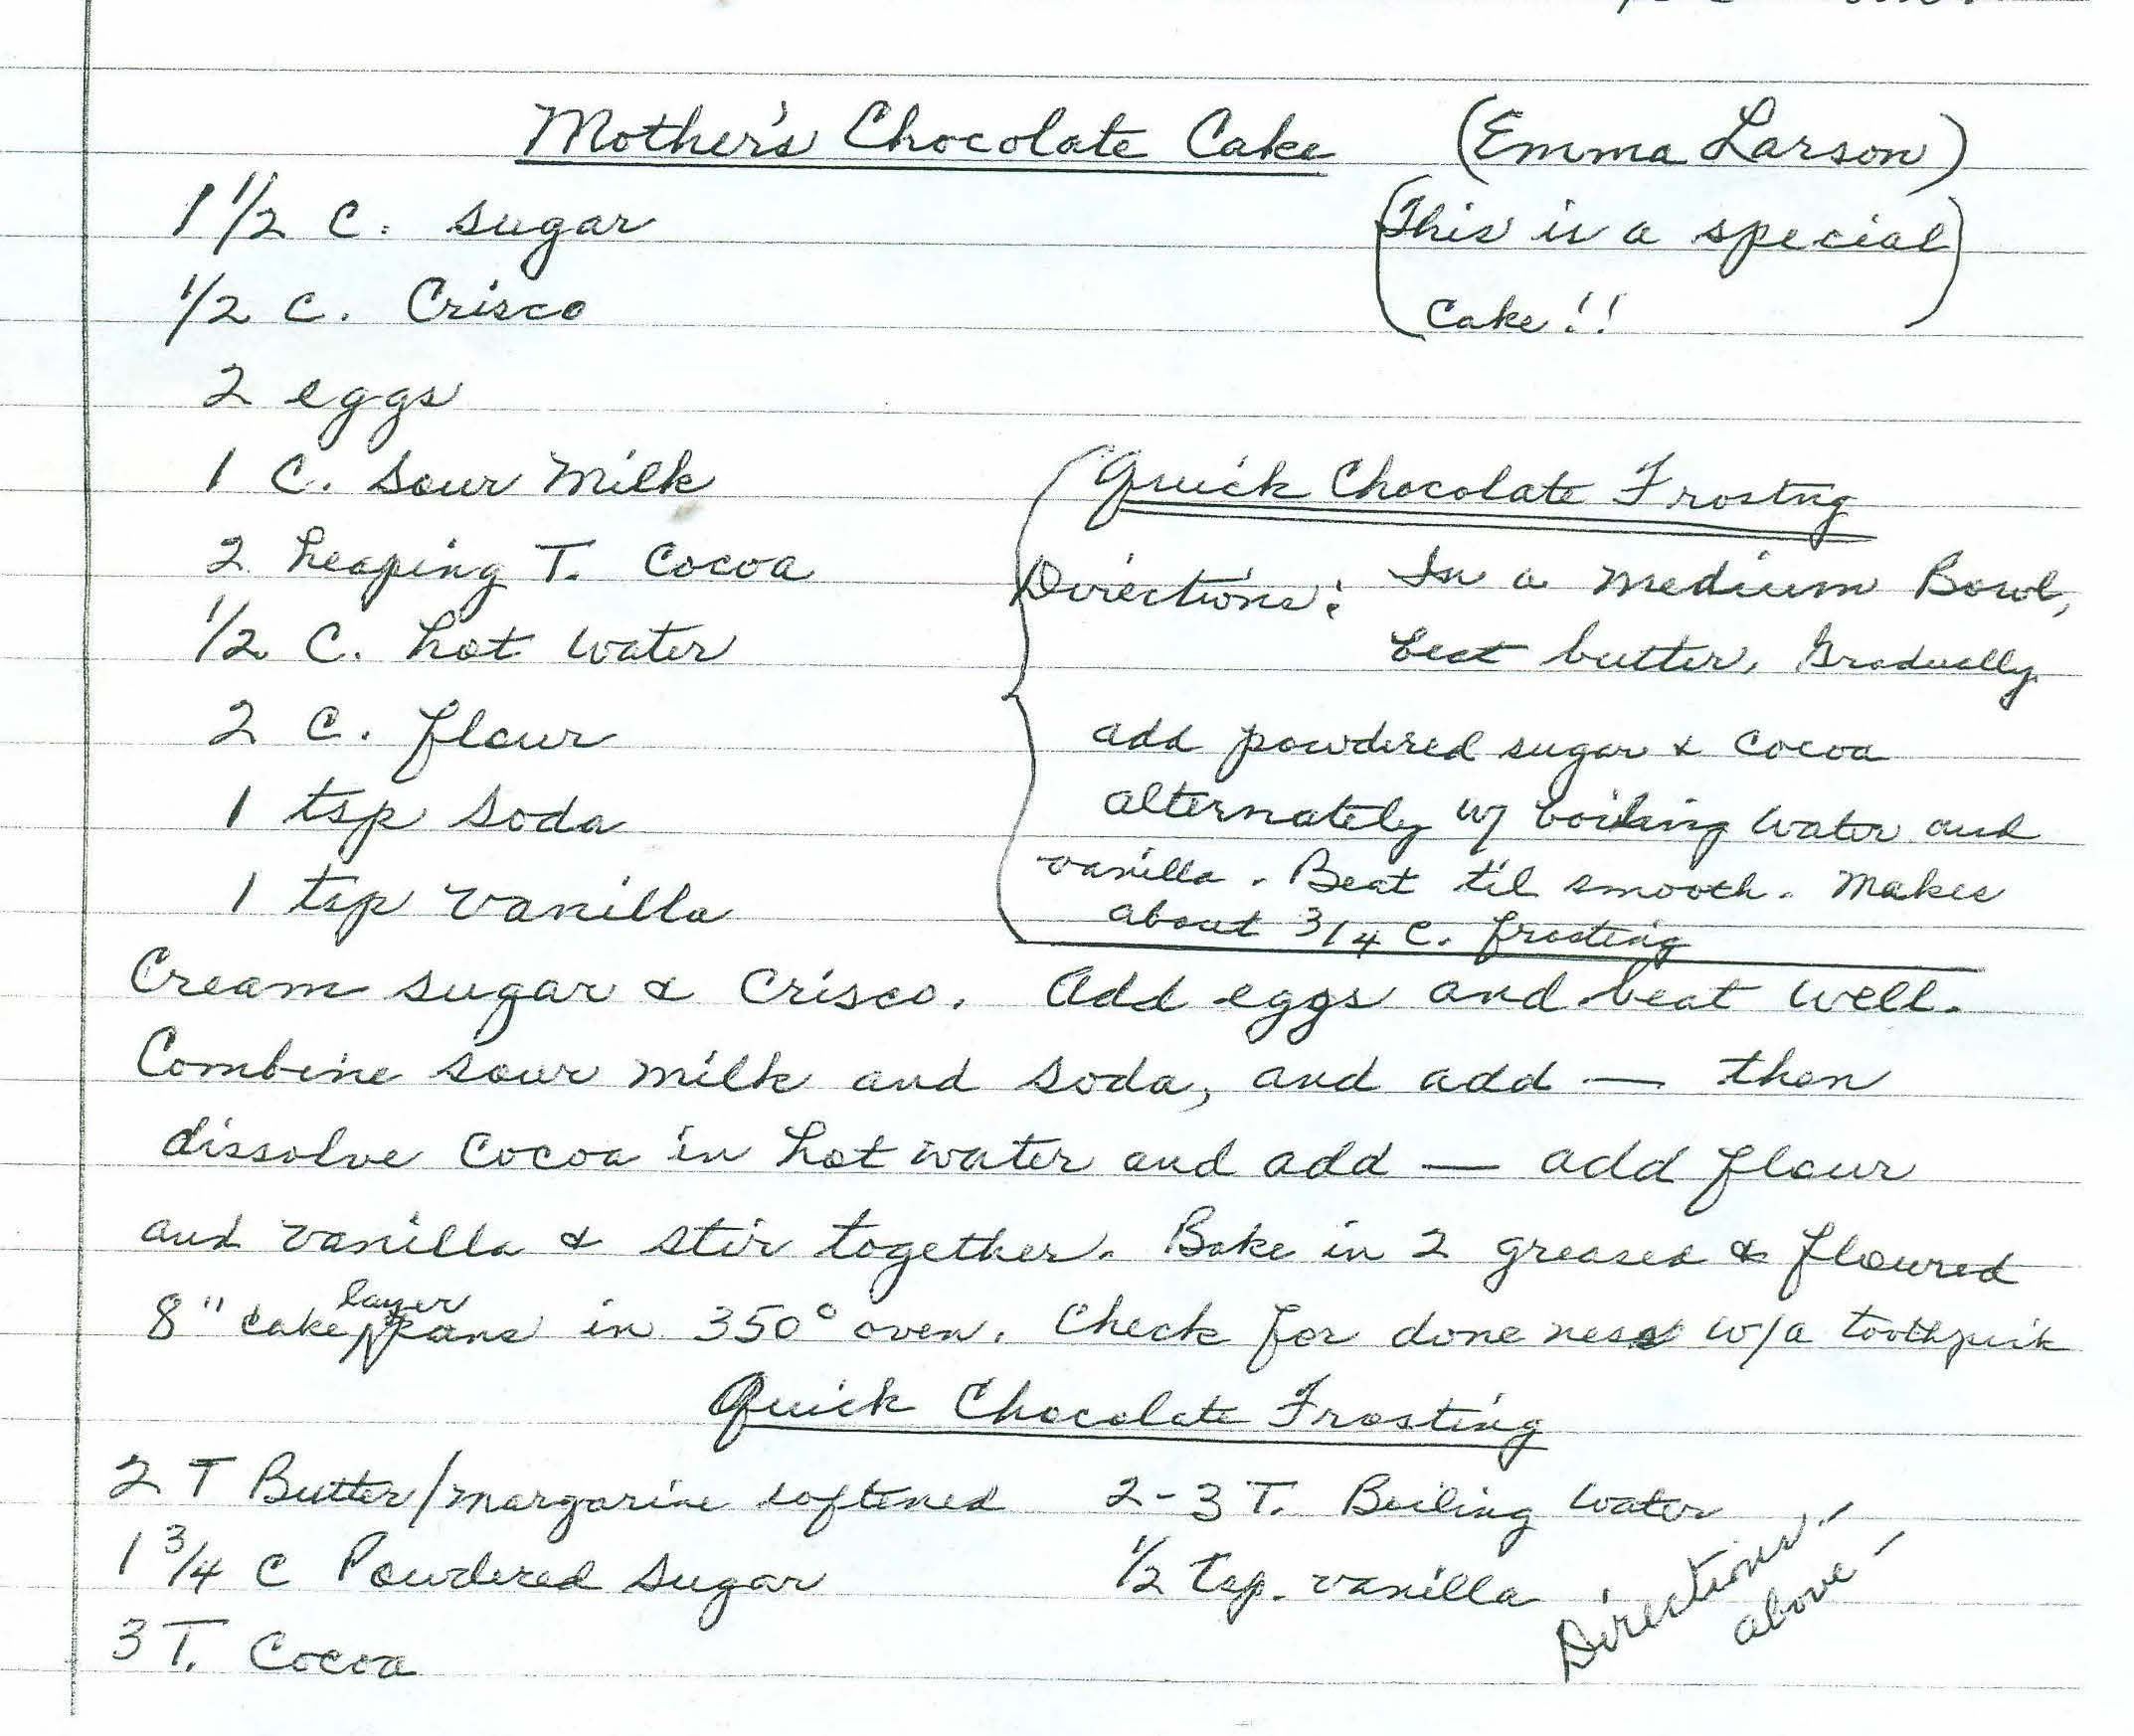 Mother's Chocolate Cake (Emma Larson)
(This is a special
cake!!)
1 1/2 C. sugar
1/2 C. Crisco
2 eggs
1 C. Sour Milk
2 heaping T. Cocoa
1/2 C. hot water
2 C. flour
1 tsp soda
1 tsp vanilla
Quick Chocolate Frostng
Directions: In a medium Bowl,
beat butter, Gradually
add powdered sugar & cocoa
alternately w/ boiling water and
vanilla. Beat til smooth. Makes
about 3/4 C. frosting
Cream sugar & Crisco. Add eggs and beat well.
Combine sour milk and soda, and add — then
dissolve cocoa in hot water and add — add flour
and vanilla & stir together. Bake in 2 greased & floured
8" cake layer pans in 350° oven. Check for doneness w/a toothpick
Quick Chocolate Frosting
2 T Butter/margarine softened 2-3 T. Boiling water
1 3/4 C Powdered Sugar 1/2 tsp. vanilla
3 T. Cocoa
Directions -
above -